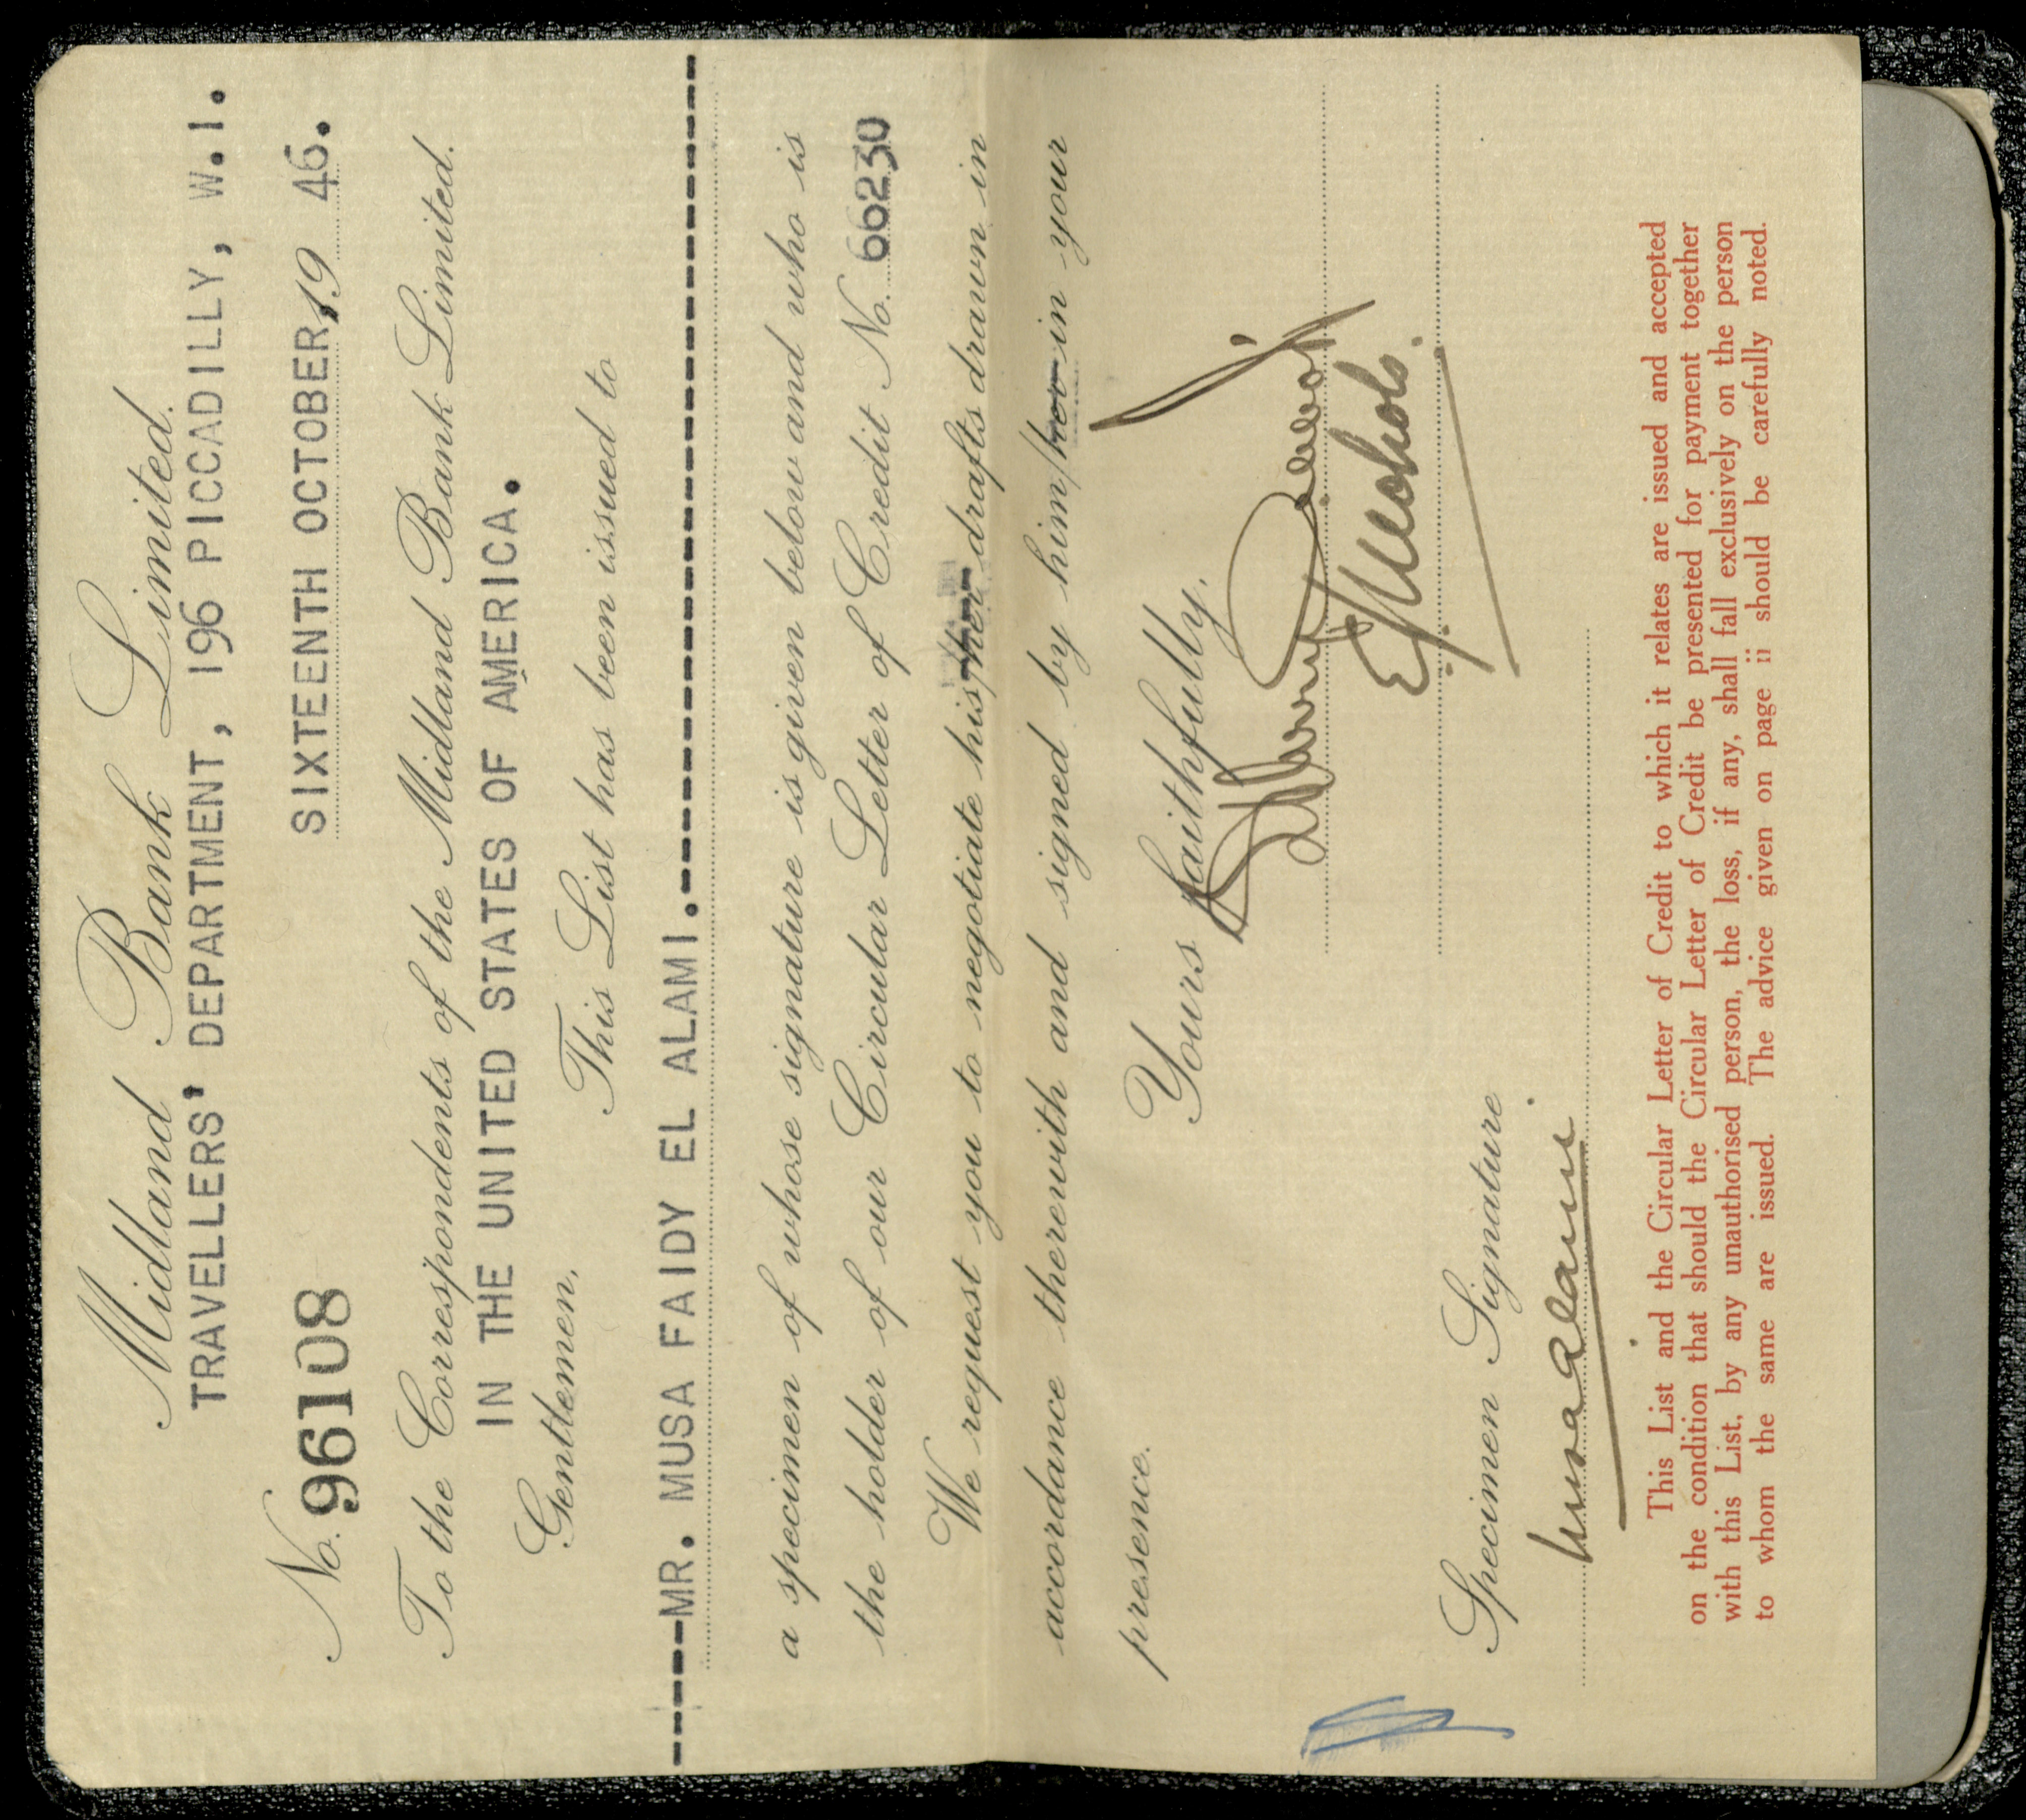 Midland Bank Limited.
TRAVELLERS' DEPARTMENT, 196 PICCADILLY, W.1.
No. 96108 SIXTEENTH OCTOBER, 19 46.
To the Correspondents of the Midland Bank Limited.
IN THE UNITED STATES OF AMERICA.
Gentlemen,
This List has been issued to
----MR. MUSA FAIDY EL ALAMI.----------------------------
a specimen of whose signature is given below and who is
the holder of our Circular Letter of Credit No. 66230
We request you to negotiate his/her drafts drawn in
accordance therewith and signed by him/her in your
presence.
Yours faithfully,
Specimen Signature
Musa Alami
This List and the Circular Letter of Credit to which it relates are issued and accepted
on the condition that should the Circular Letter of Credit be presented for payment together
with this List, by any unauthorised person, the loss, if any, shall fall exclusively on the person
to whom the same are issued. The advice given on page ii should be carefully noted.